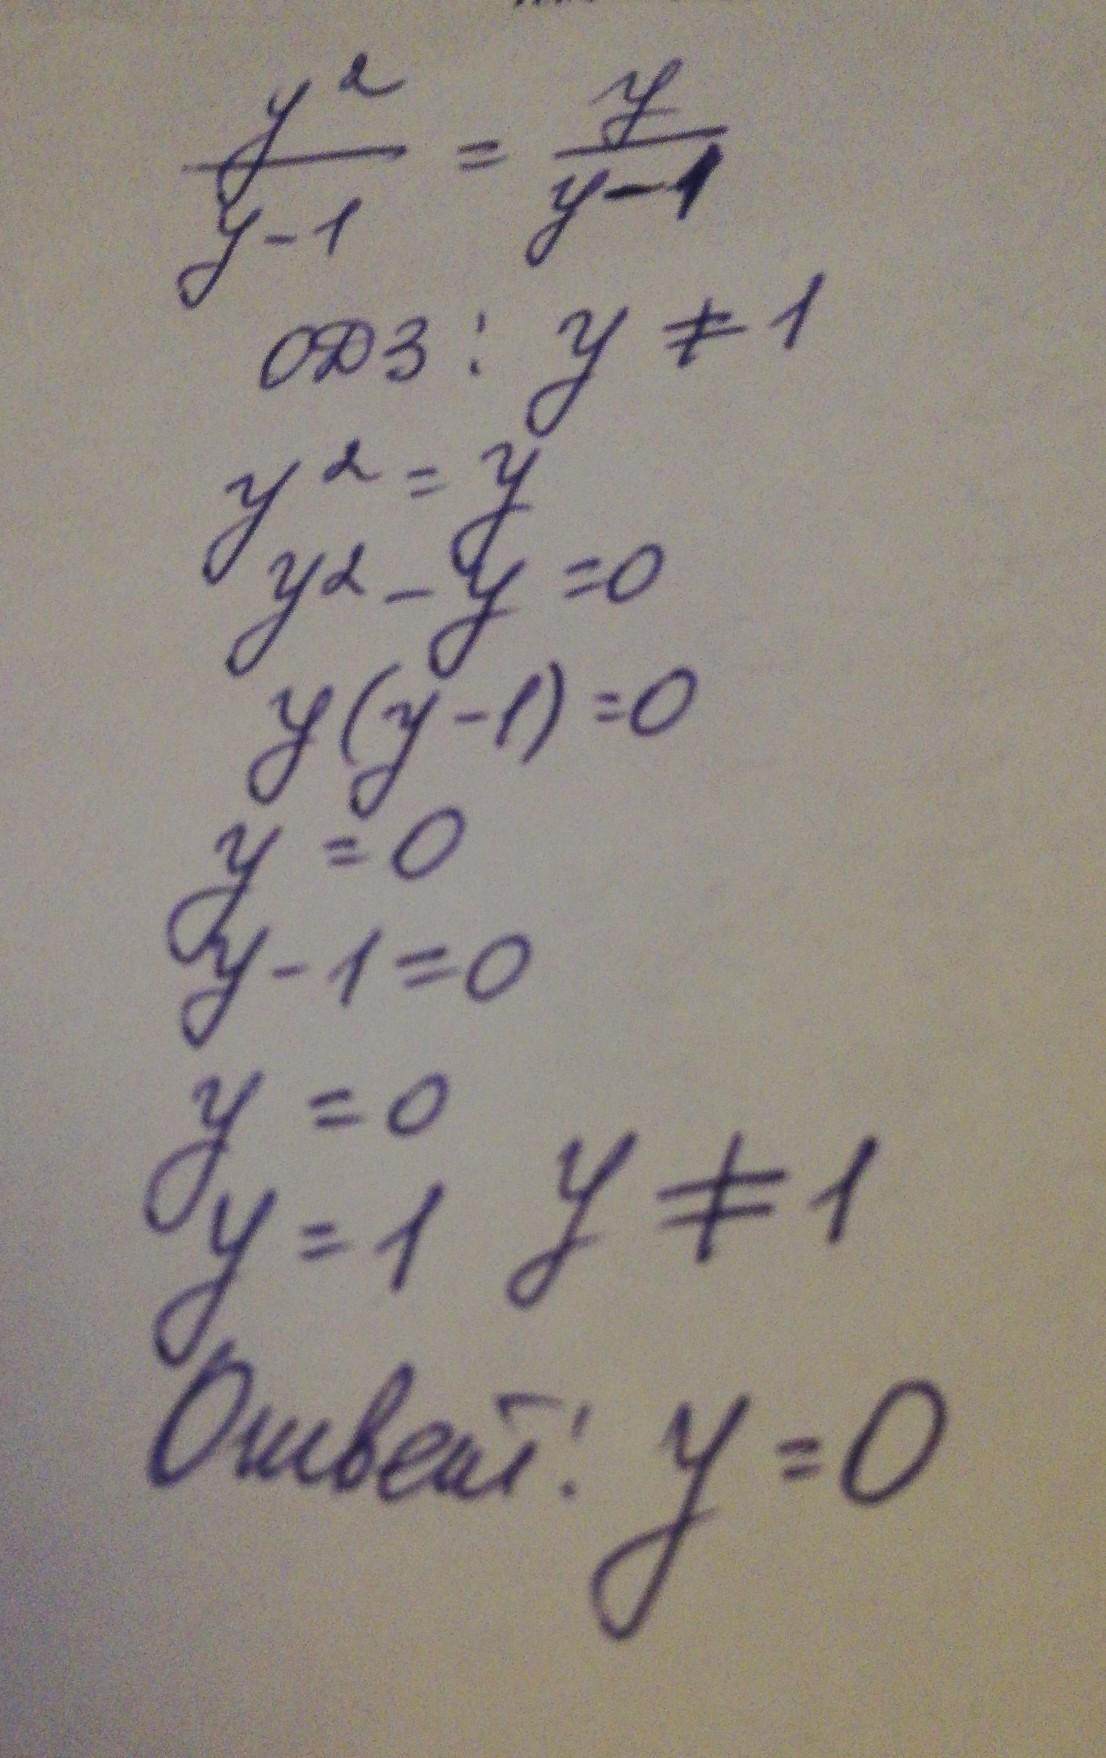 y² / y-1 = y / y-1
ОДЗ: y ≠ 1
y² = y
y² - y = 0
y(y-1) = 0
y = 0
y - 1 = 0
y = 0
y = 1 y ≠ 1
Ответ: y = 0